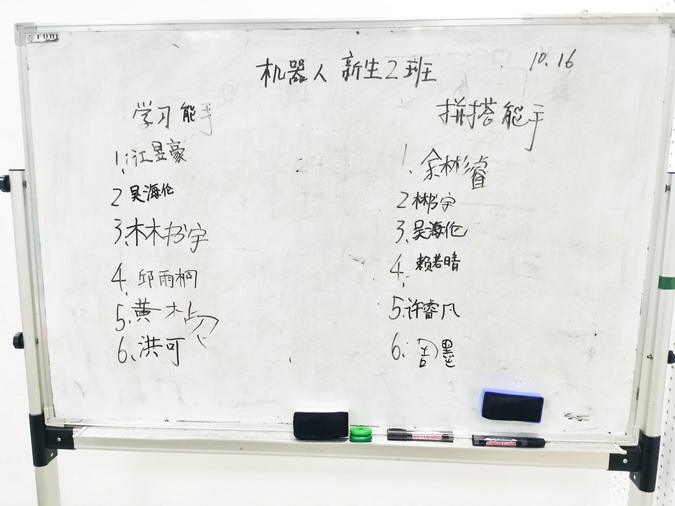 机器人新生2班
10.16
学习能手
1.江昱豪
2吴海伦
3.林书宇
4.邱雨桐
5.黄
6.洪可
拼搭能手
1.余彬睿
2林书宇
3.吴海伦
4.赖若晴
5.许睿凡
6.周墨